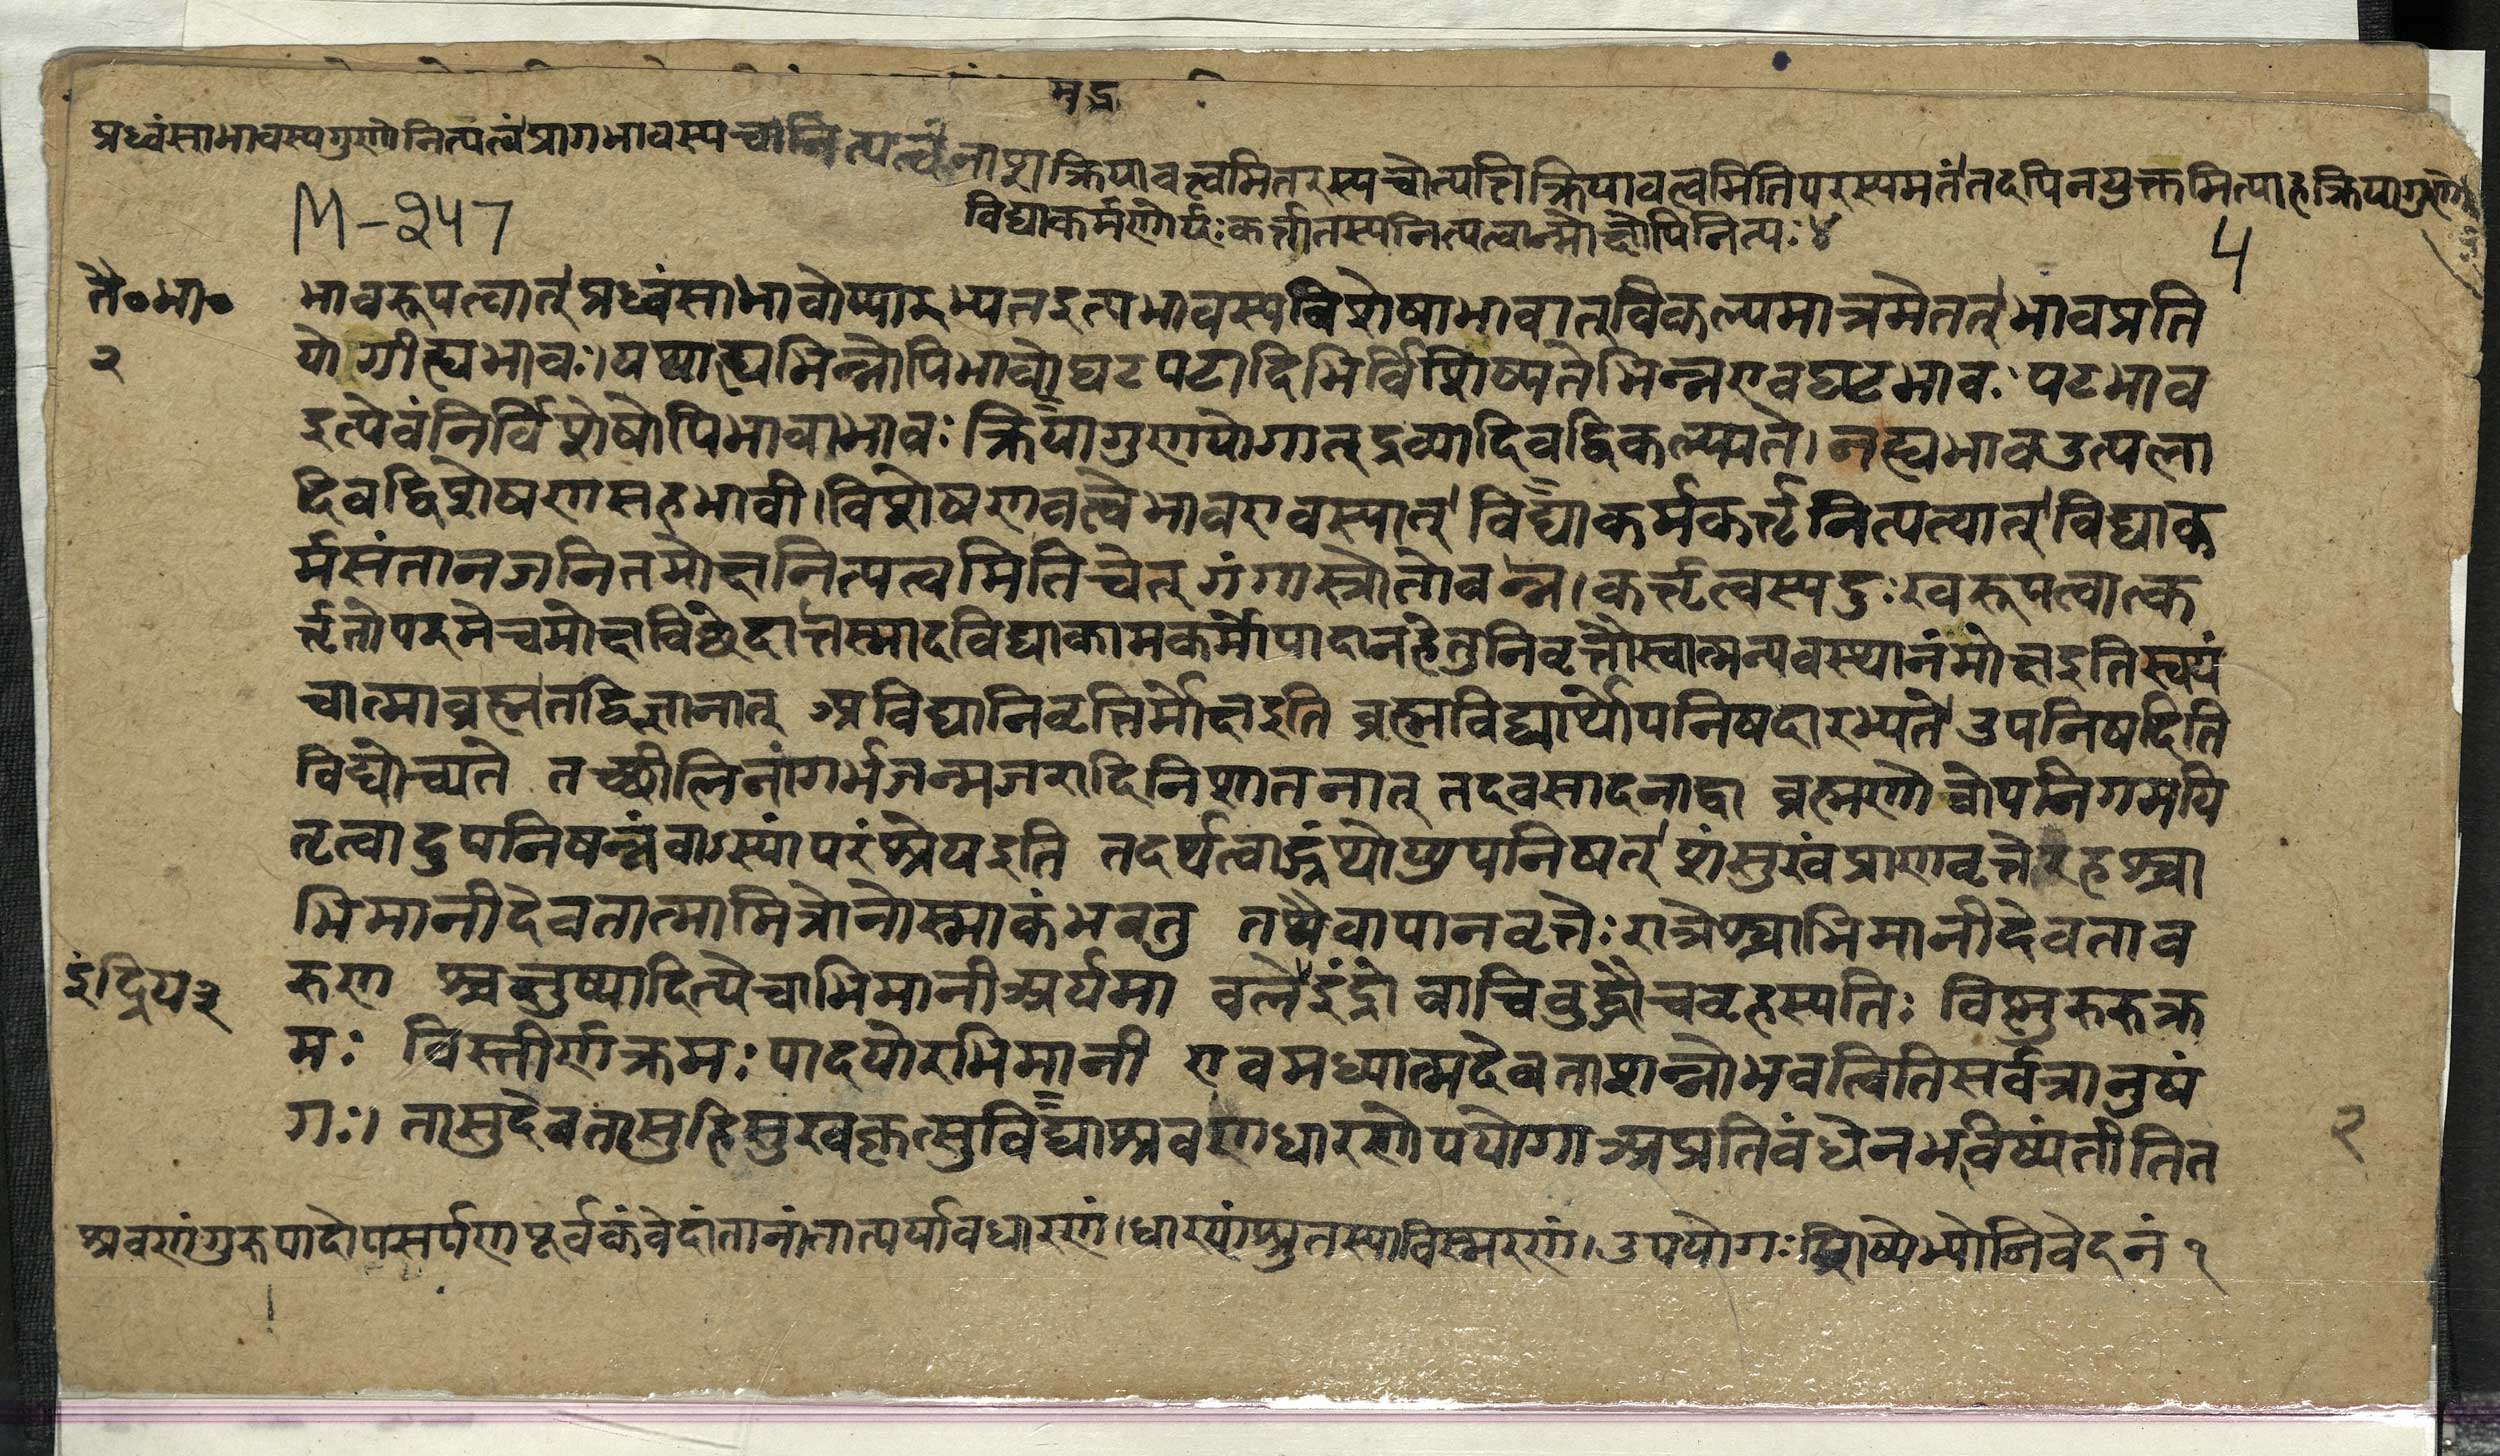 मुद्र
प्रध्वंसाभावस्यगुणोनित्यत्वंप्रागभावस्यचानित्यत्वंनाशक्रियावत्त्वमितरस्यचोत्पत्तिक्रियावत्वमितिपरस्यमतंतदपिनयुक्तमित्याहक्रियागुणे
M-247
विद्याकर्मणोर्यःकर्त्तातस्यनित्यत्वान्मोक्षोपिनित्यः४
4
तै०भा०
भावरूपत्वात्प्रध्वंसाभावोप्यारभ्यतइत्यभावस्यविशेषाभावात्विकल्पमात्रमेतत्भावप्रति
२
योगीह्यभावः।यथाह्यभिन्नोपिभावोघटपटादिभिर्विशिष्यतेभिन्नएवघटभावःपटभाव
इत्येवंनिर्विशेषोपिभावाभावःक्रियागुणयोगात्द्रव्यादिवद्विकल्प्यते।नह्यभावउत्पला
दिवद्विशेषणसहभावी।विशेषणवत्वेभावएवस्यात्विद्याकर्मकर्तृनित्यत्वात्विद्याक
र्मसंतानजनितमोक्षनित्यत्वमितिचेत्गंगास्रोतोवन्न।कर्तृत्वस्यदुःखरूपत्वात्क
र्त्तृतोपरमेचमोक्षविछेदात्तस्मादविद्याकामकर्मोपादानहेतुनिवृत्तौस्वात्मन्यवस्थानंमोक्षइतिस्वयं
चात्माब्रह्मतद्विज्ञानात् अविद्यानिवृत्तिर्मोक्षइति ब्रह्मविद्यार्थोपनिषदारभ्यते उपनिषदिति
विद्योच्यते तच्छीलिनांगर्भजन्मजरादिनिशातनात् तदवसादनाद्वा ब्रह्मणोवोपनिगमयि
तृत्वादुपनिषन्नंवाऽस्यांपरंश्रेयइति तदर्थत्वाद्ग्रंथोप्युपनिषत् शंसुखंप्राणवृत्तेरह्नश्चा
भिमानीदेवतात्मामित्रोनोस्माकंभवतु तथैवापानवृत्तेःरात्रेश्चाभिमानीदेवताव
इंद्रिय३
रुण श्चक्षुष्यादित्येचाभिमानीअर्यमा बलेइंद्रो वाचिबुद्धौचबृहस्पतिः विष्णुरुरुक्र
मः विस्तीर्णक्रमःपादयोरभिमानी एवमध्यात्मदेवताशन्नोभवत्वितिसर्वत्रानुषं
गः।तासुदेवतासुहिसुखकृत्सुविद्याश्रवणधारणोपयोगाअप्रतिबंधेनभविष्यंतीतित
२
श्रवणंगुरुपादोपसर्पणपूर्वकंवेदांतानांतात्पर्यावधारणं।धारणंश्रुतस्याविस्मरणं।उपयोगःशिष्येभ्योनिवेदनं१